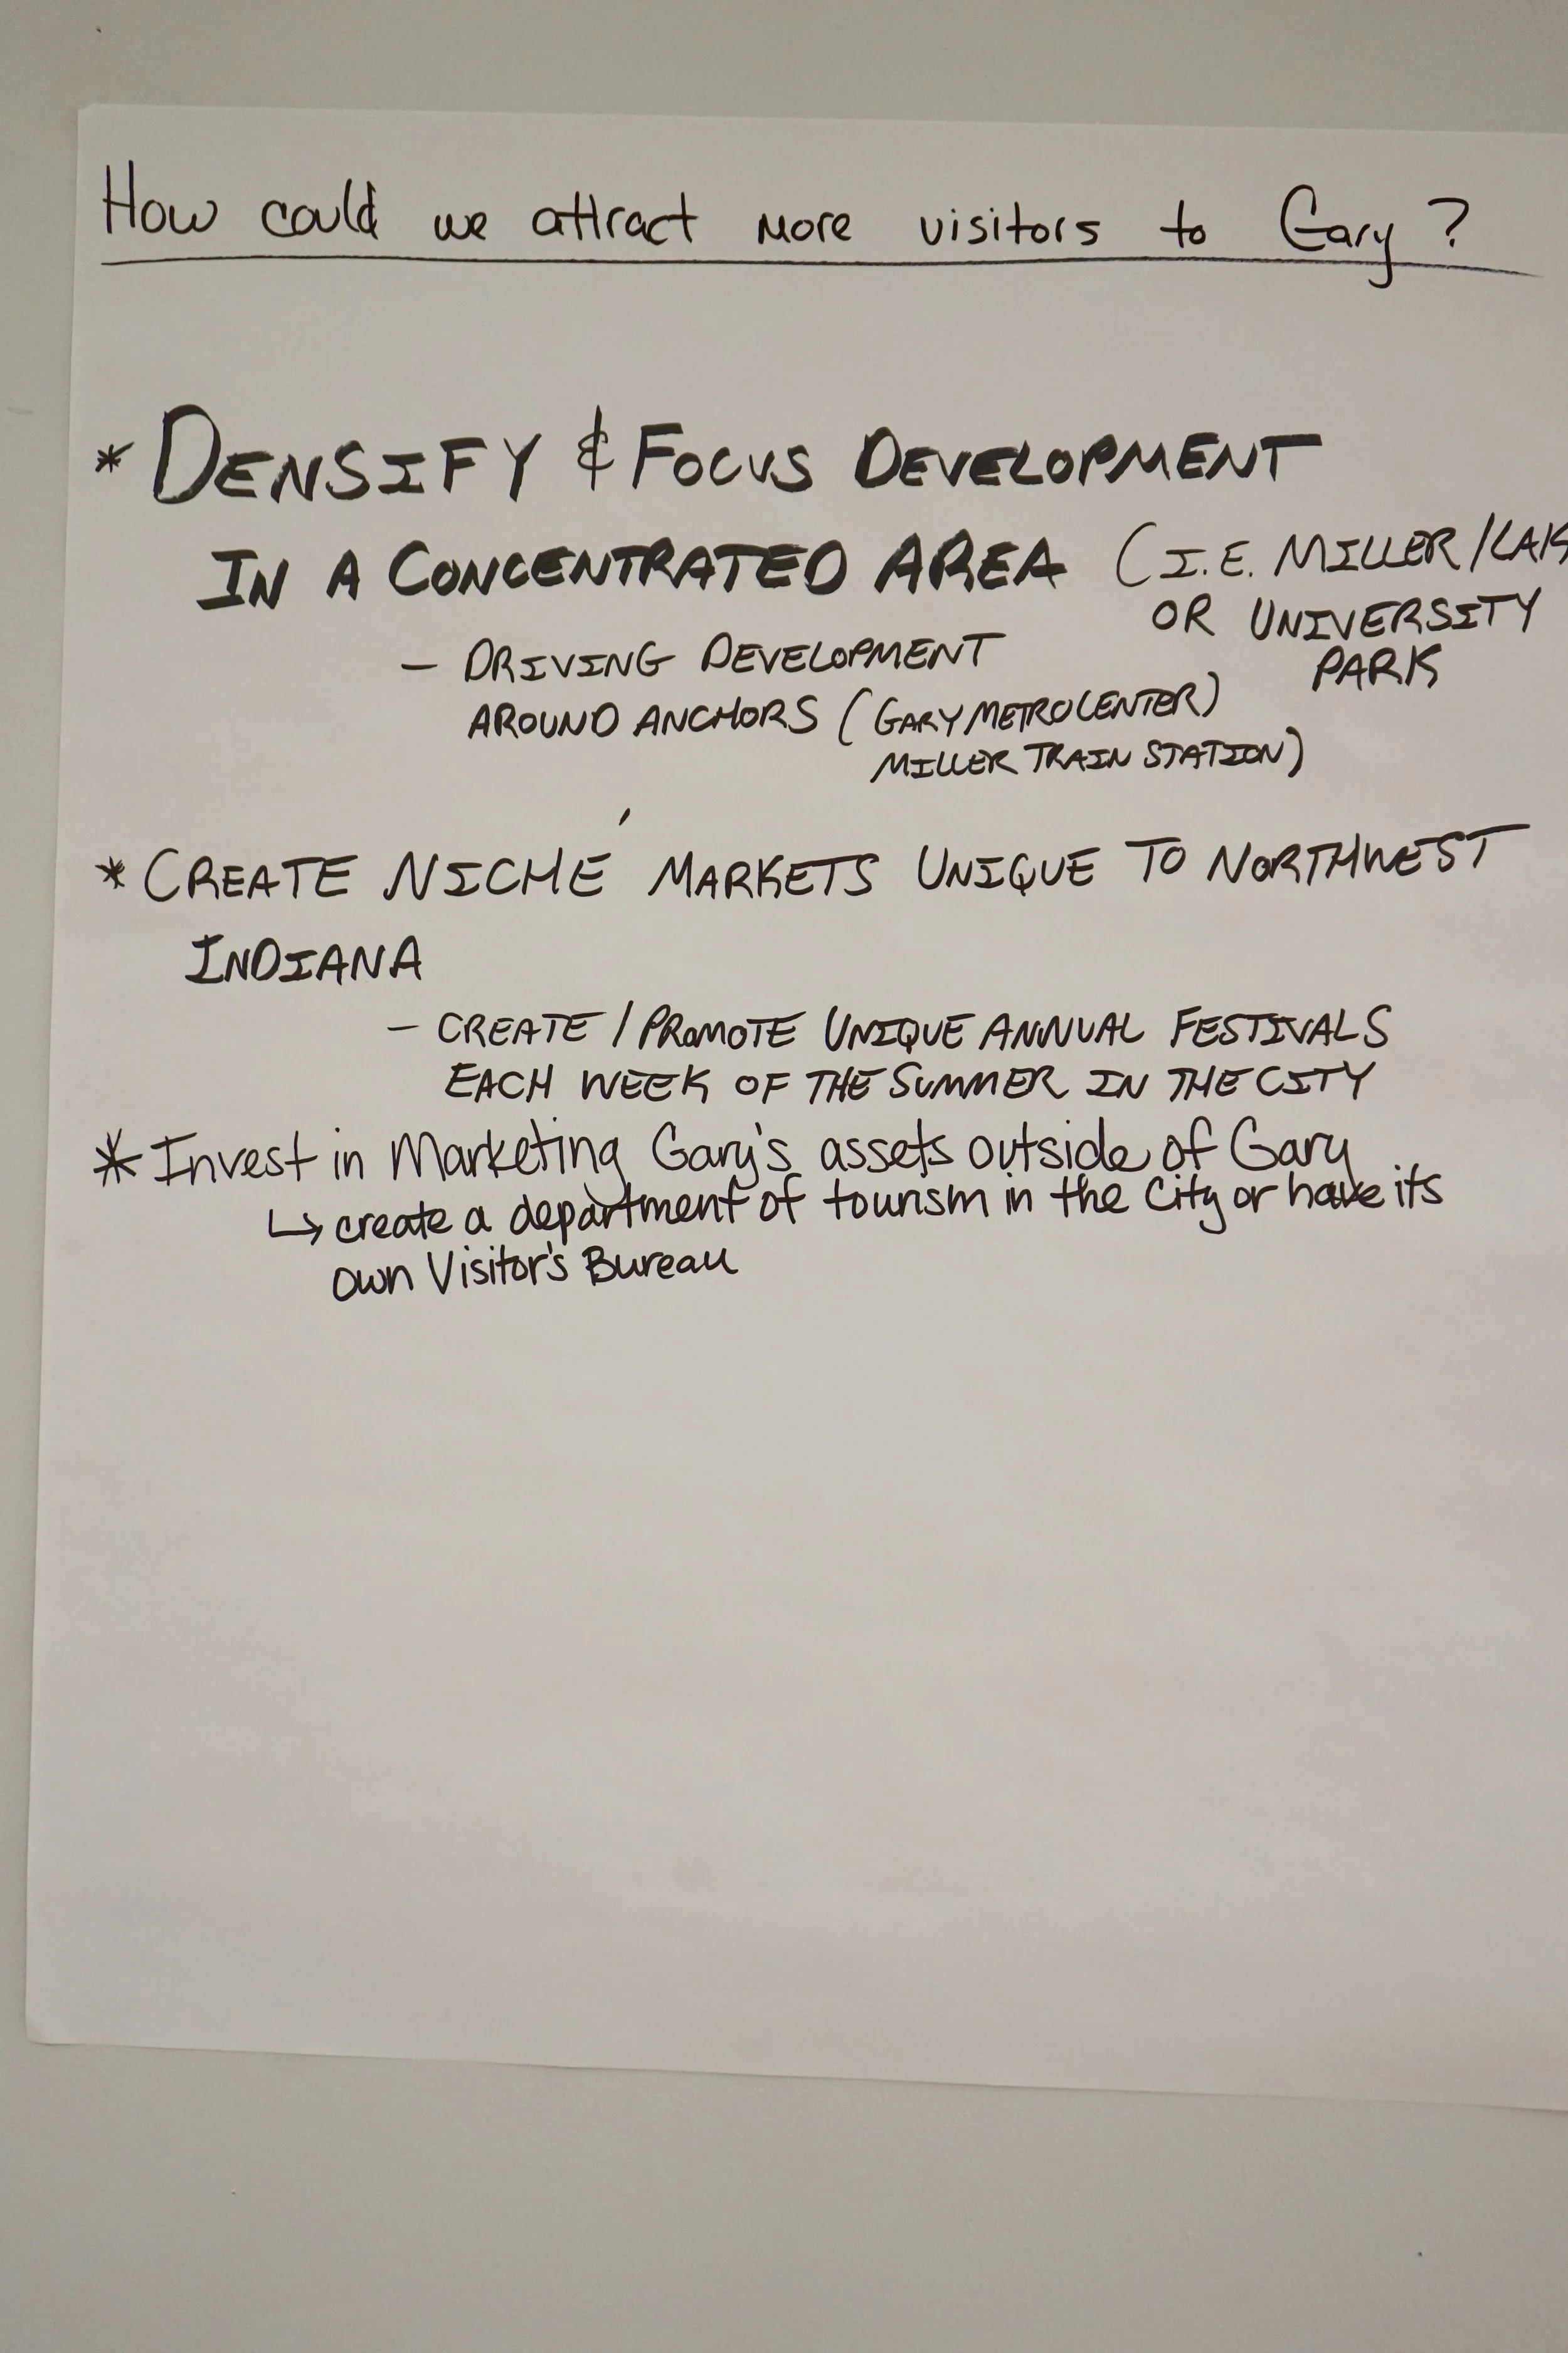 How could we attract more visitors to Gary?
* DENSIFY & FOCUS DEVELOPMENT
IN A CONCENTRATED AREA (I.E. MILLER/LAK
OR UNIVERSITY
PARK
- DRIVING DEVELOPMENT
AROUND ANCHORS (GARY METRO CENTER)
MILLER TRAIN STATION)
* CREATE NICHÉ MARKETS UNIQUE TO NORTHWEST
INDIANA
- CREATE / PROMOTE UNIQUE ANNUAL FESTIVALS
EACH WEEK OF THE SUMMER IN THE CITY
* Invest in Marketing Gary's assets outside of Gary
↳ create a department of tourism in the City or have its
own Visitor's Bureau